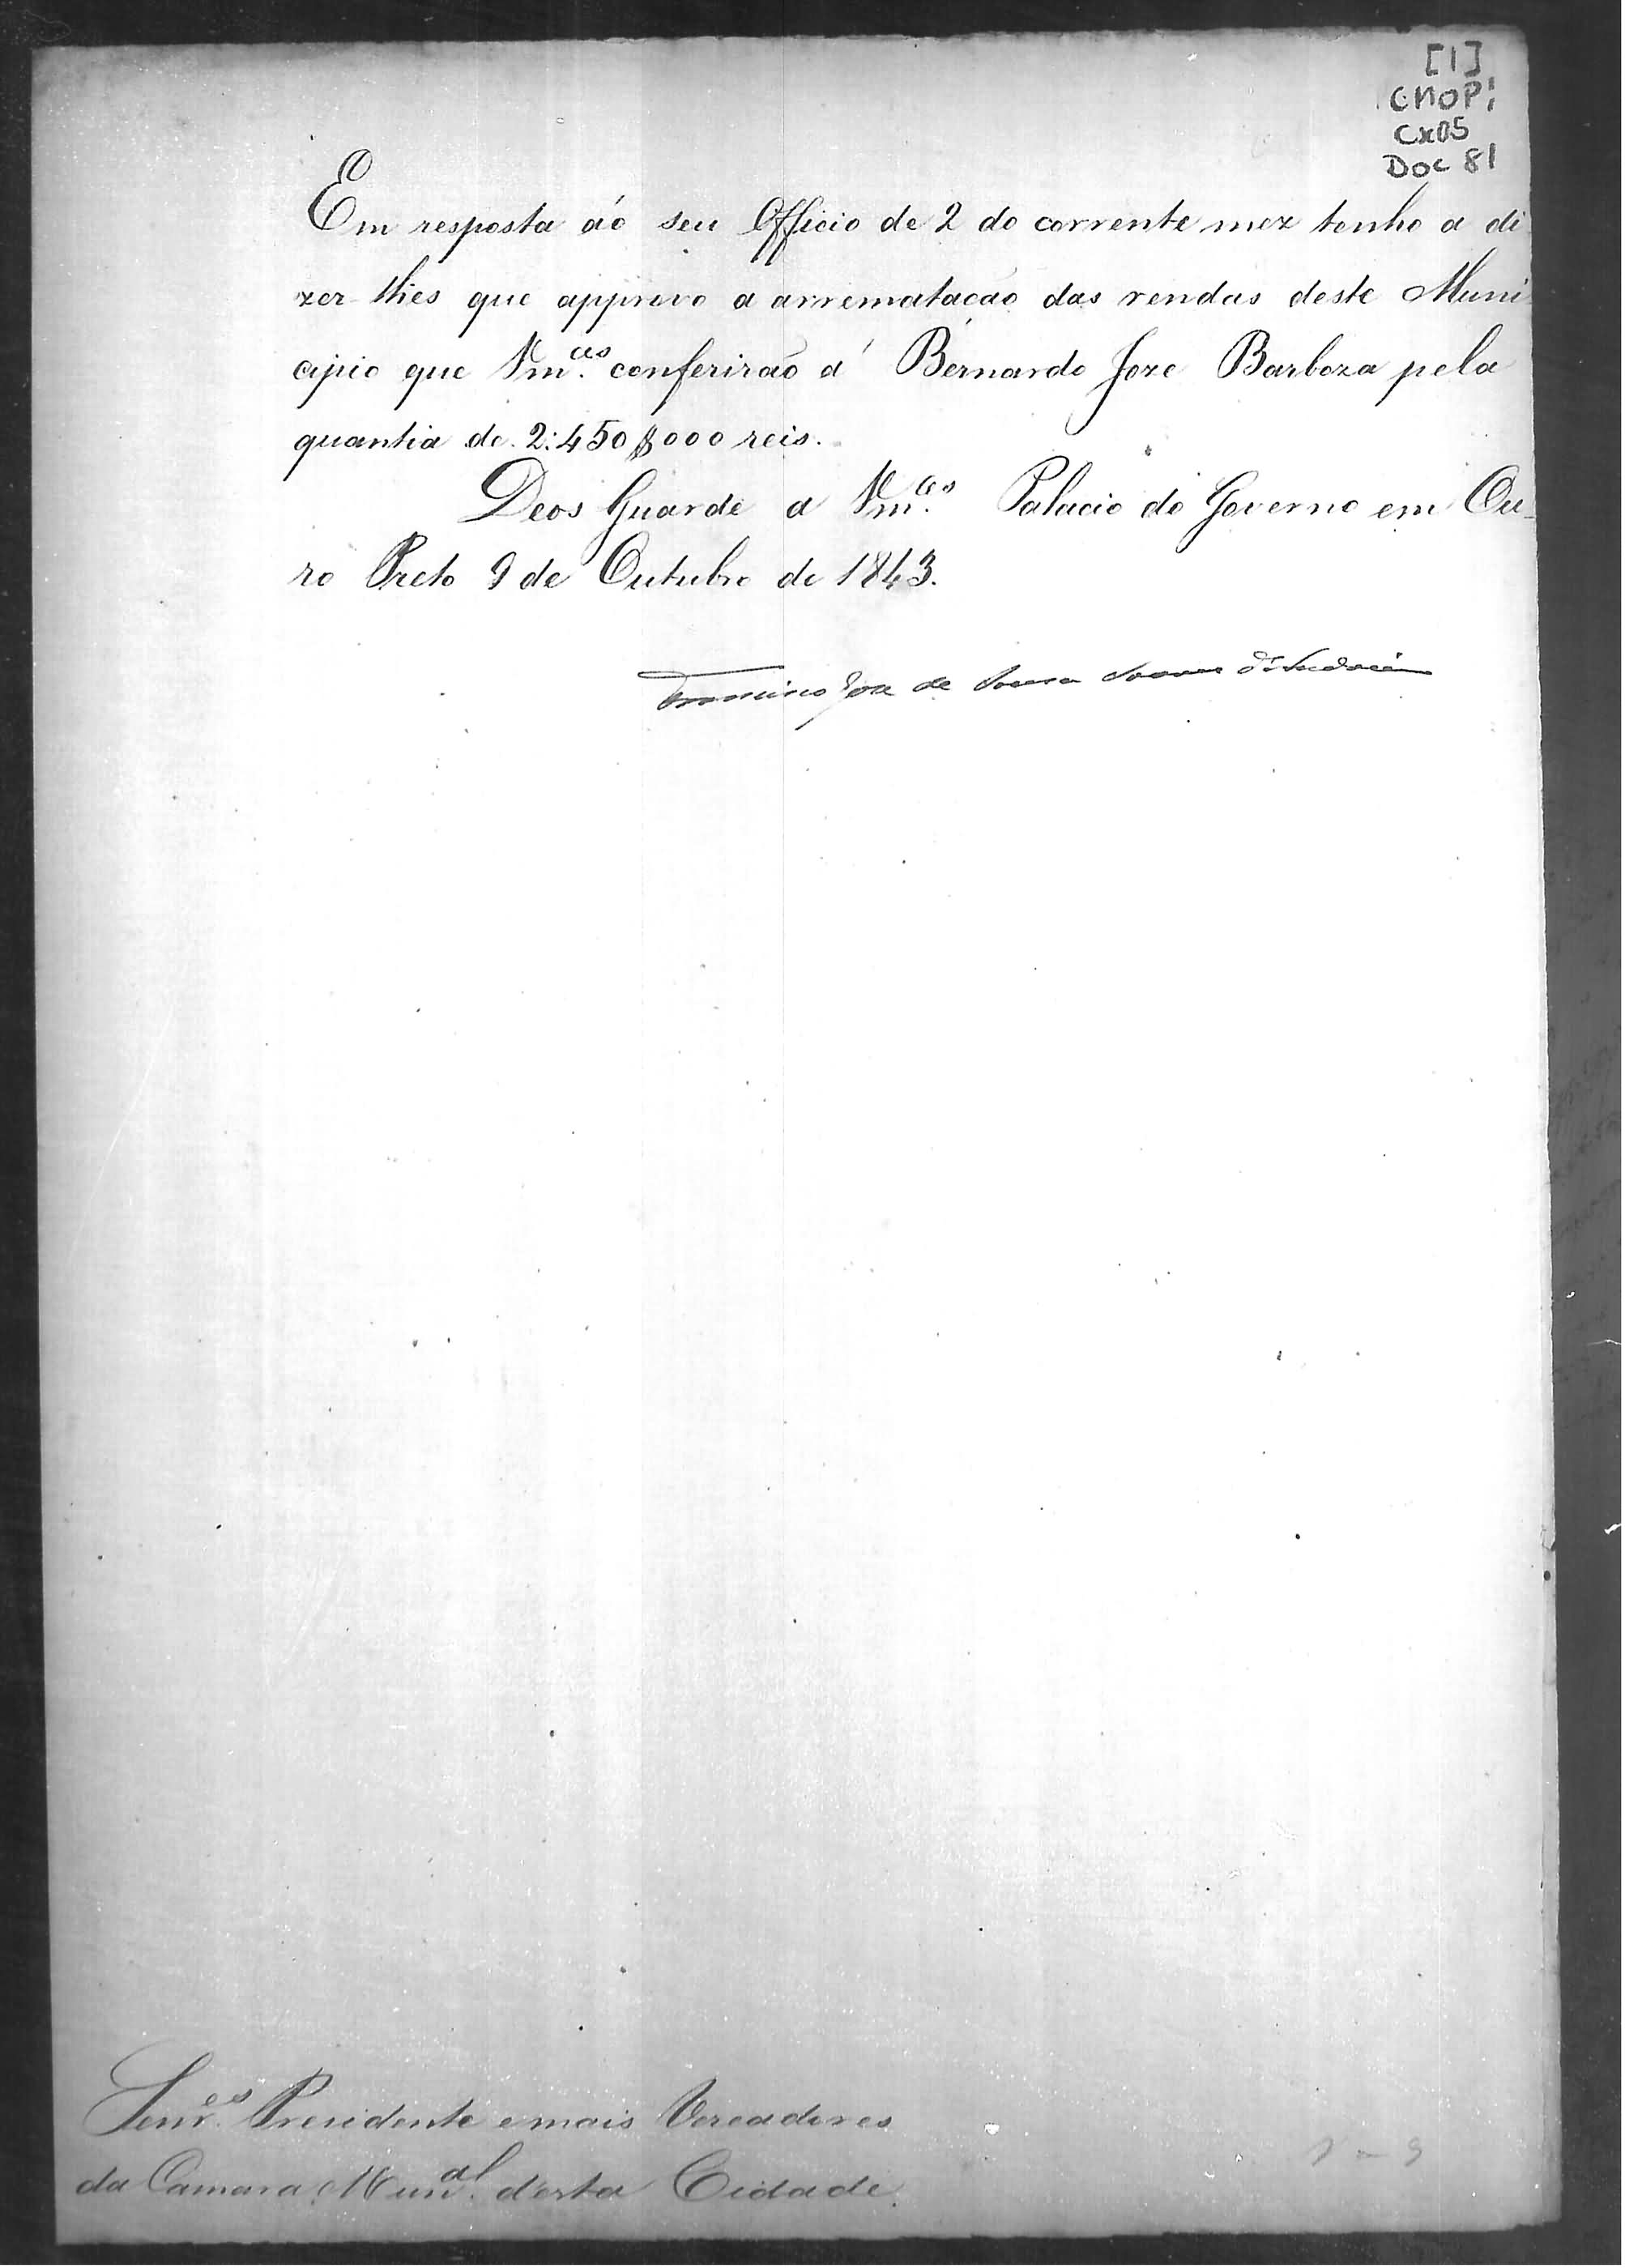 [1]
CMOP:
Cx05
Doc 81
Em resposta áo seu Officio de 2 do corrente mez tenho a di
zer-lhes que approvo a arrematacão das rendas deste Muni
cipio que Vm.ces conferirão á Bernardo Joze Barboza pela
quantia de 2:450$000 reis.
Deos Guarde a Vm.ces Palacio do Governo em Ou-
ro Preto 9 de Outubro de 1843.
Francisco Joze de Souza Soares d'Andréa
Senr.es Presidente e mais Vereadores
da Camara Mun.al desta Cidade.